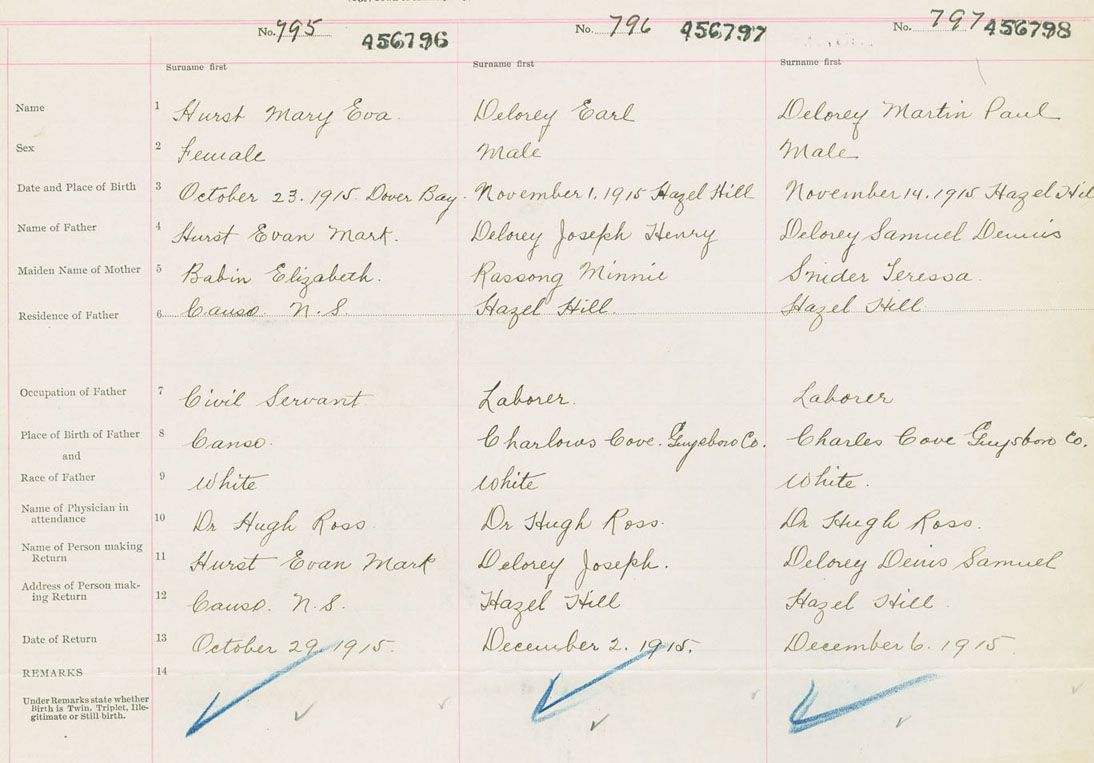 No. 795 A56796 No. 796 A56797 No. 797 A56798
Surname first Surname first Surname first
Name 1 Hurst Mary Eva. Delorey Earl Delorey Martin Paul
Sex 2 Female Male Male
Date and Place of Birth 3 October 23. 1915. Dover Bay. November 1, 1915 Hazel Hill November 14. 1915 Hazel Hil
Name of Father 4 Hurst Evan Mark. Delorey Joseph Henry Delorey Samuel Dennis
Maiden Name of Mother 5 Babin Elizabeth. Rassong Minnie Snider Teressa.
Residence of Father 6 Canso. N.S. Hazel Hill. Hazel Hill
Occupation of Father 7 Civil Servant Laborer. Laborer
Place of Birth of Father 8 Canso. Charlows Cove. Guysboro Co. Charles Cove Guysboro Co.
and
Race of Father 9 White White White.
Name of Physician in
attendance 10 Dr Hugh Ross. Dr Hugh Ross. Dr Hugh Ross.
Name of Person making
Return 11 Hurst Evan Mark Delorey Joseph. Delorey Denis Samuel
Address of Person mak-
ing Return 12 Canso. N.S. Hazel Hill Hazel Hill.
Date of Return 13 October 29. 1915. December 2. 1915. December 6. 1915
REMARKS 14
Under Remarks state whether
Birth is Twin, Triplet, Ille-
gitimate or Still birth.